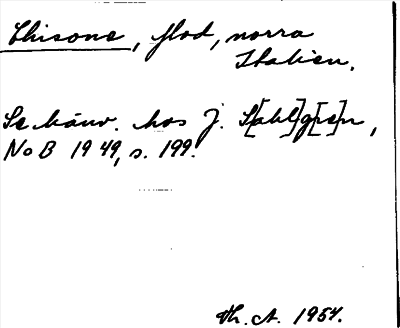 Chisone, flod, norra
Italien.
Se hänv. hos J. S[ahl]g[re]n,
NoB 1949, s. 199.
Th. A. 1954.